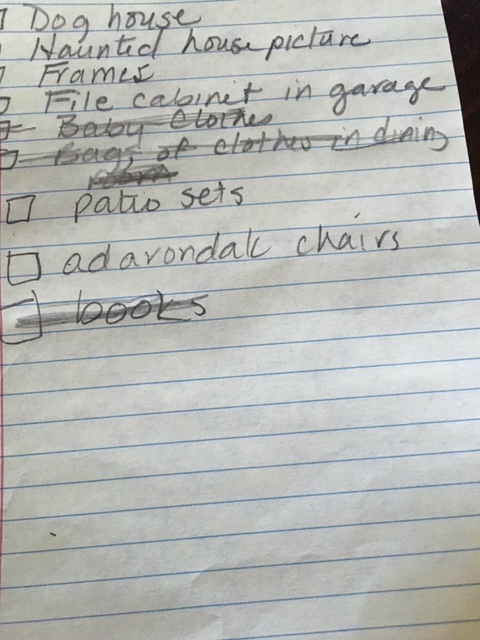 Dog house
Haunted house picture
Frames
File cabinet in garage
Baby Clothes
Bags of clothes in dining
room
patio sets
adarondak chairs
books